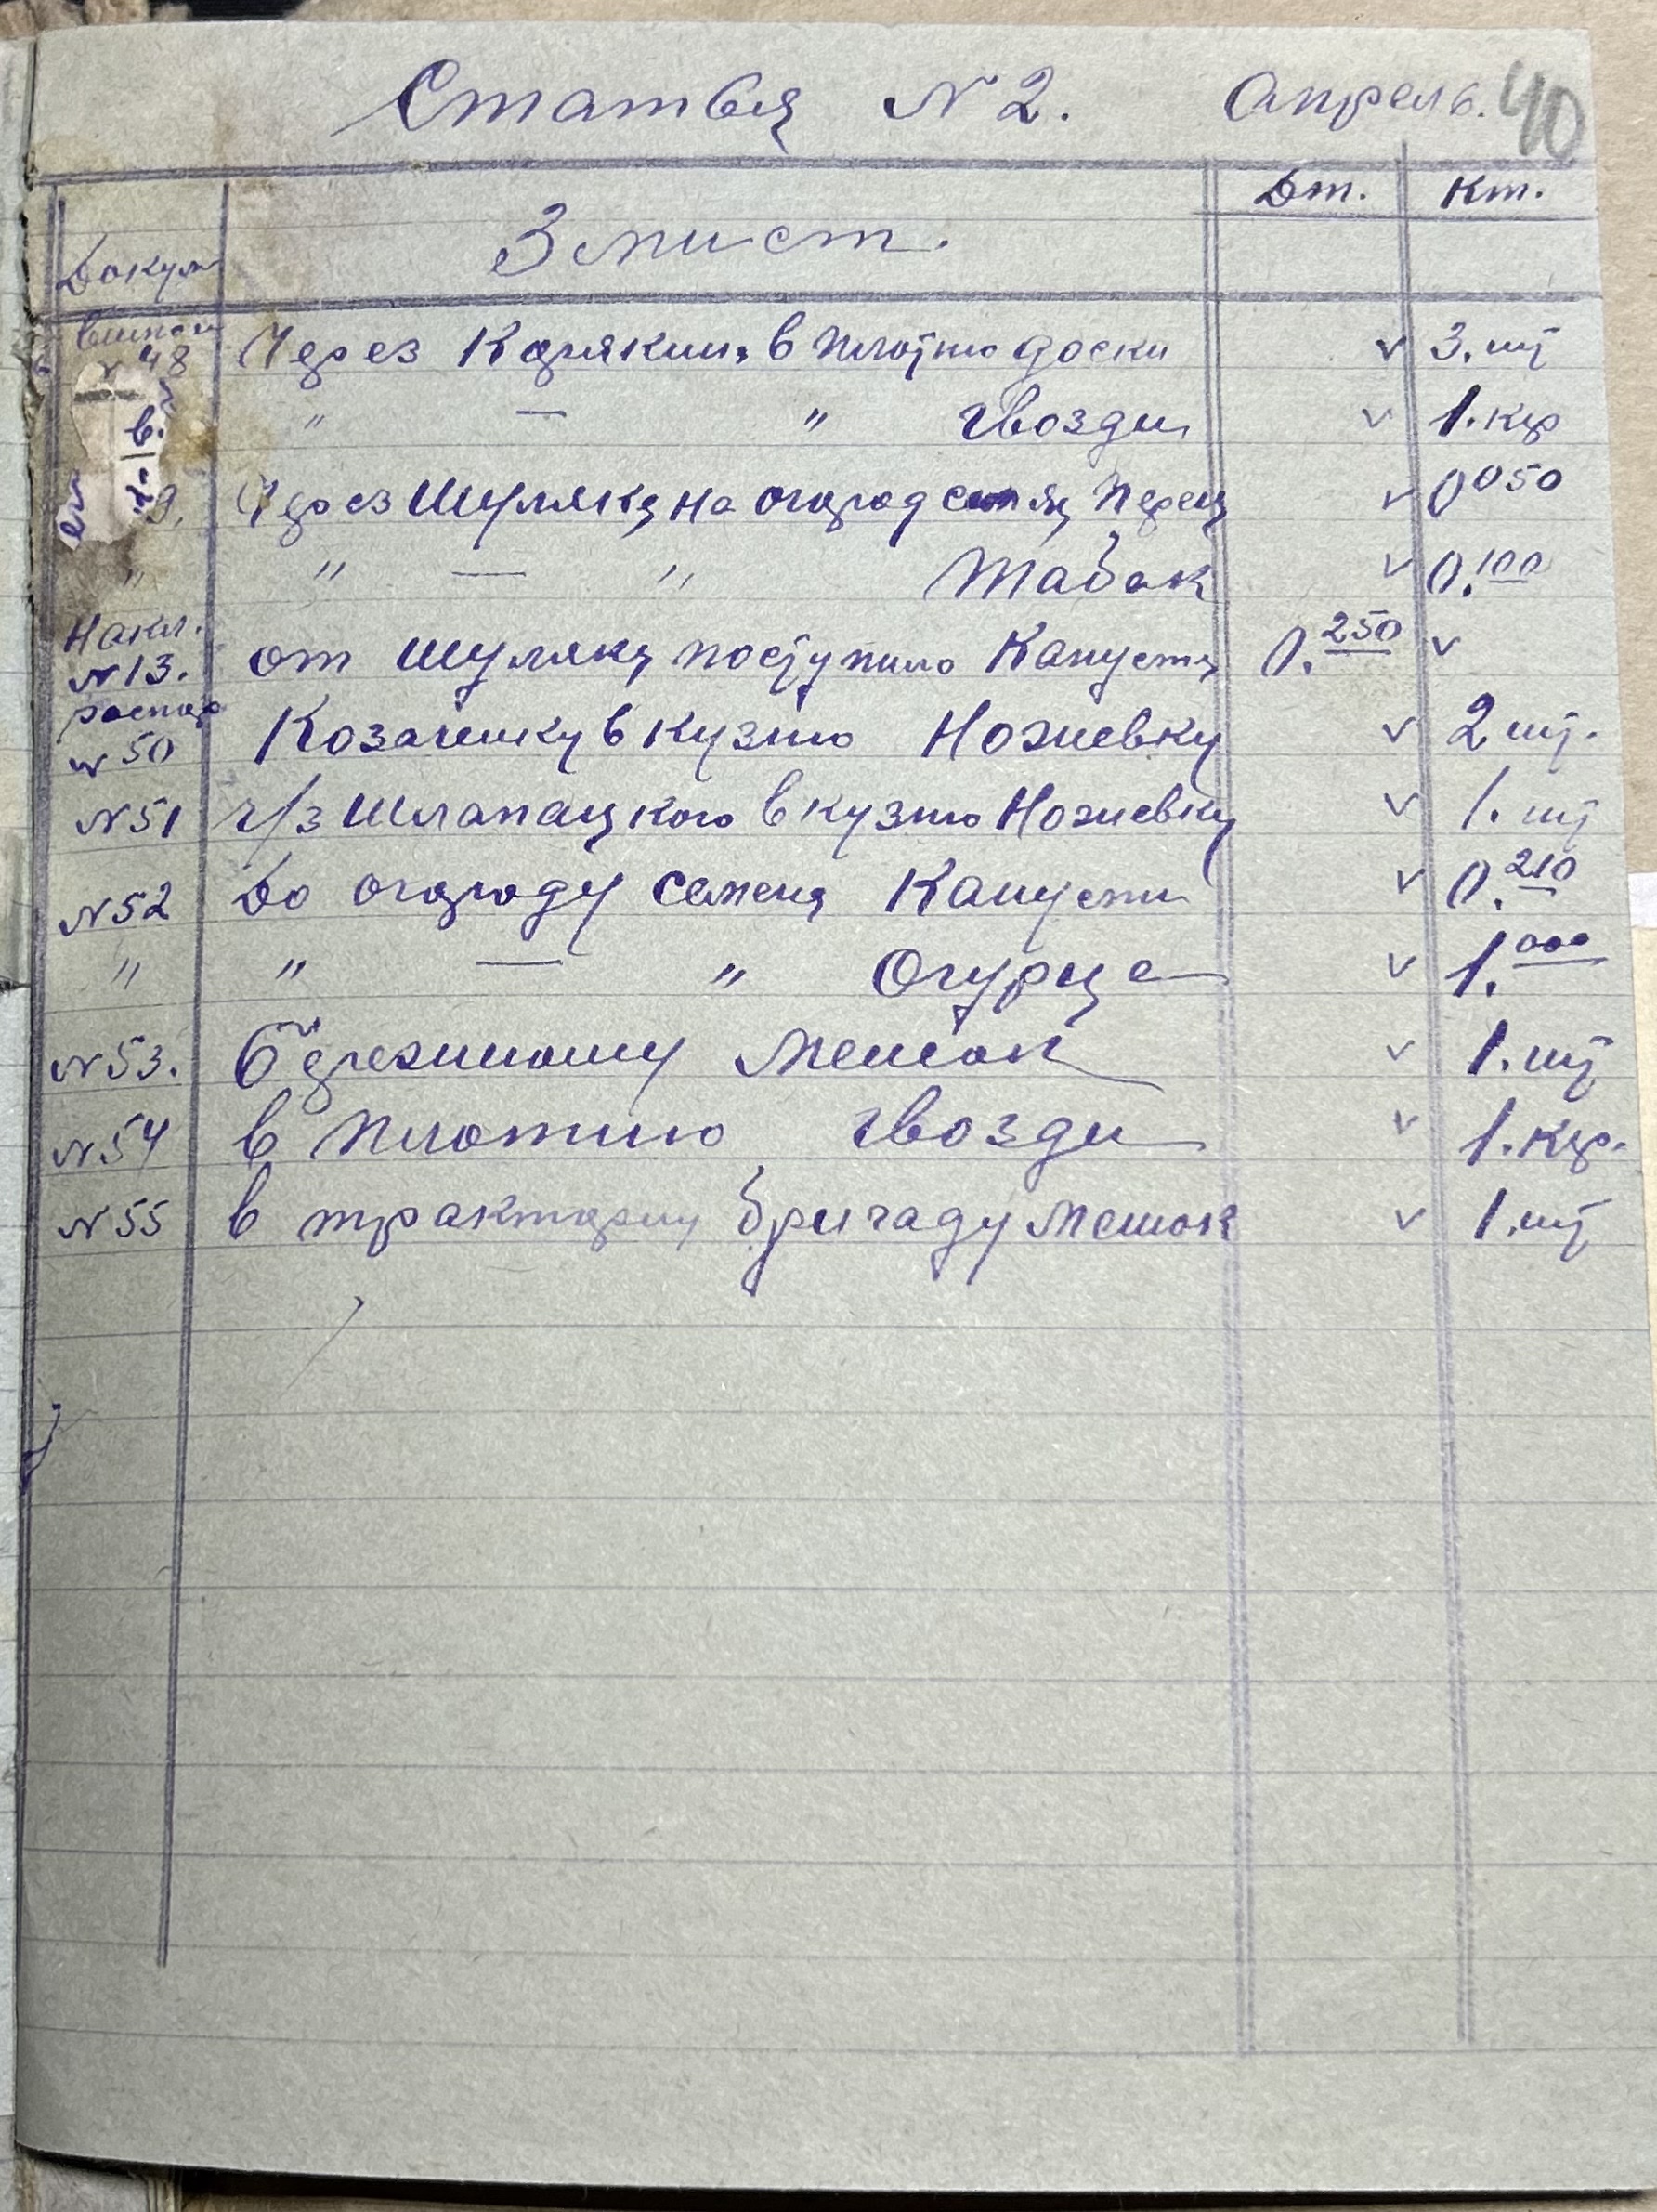 Статья N 2. Апрель. 40
Докум Змист. Дт. Кт.
N 48 Через Корякина в плотню доски v 3. шт
" — " гвозди v 1. кгр
9. Через Шуляка на огород семя Перец v 0 050
" " — " Табак v 0. 100
Накл. N 13. от Шуляка поступило Капуста 0. 250 v
распор N 50 Козаченку в кузню Ножевку v 2 шт.
N 51 ч/з Шлапацкого в кузню Ножевку v 1. шт
N 52 до огороду семена Капусти v 0. 210
" " — " Огурце v 1. 000
N 53. Бережному мешок v 1. шт
N 54 в плотню гвозди v 1. кгр.
N 55 в тракторну бригаду мешок v 1. шт